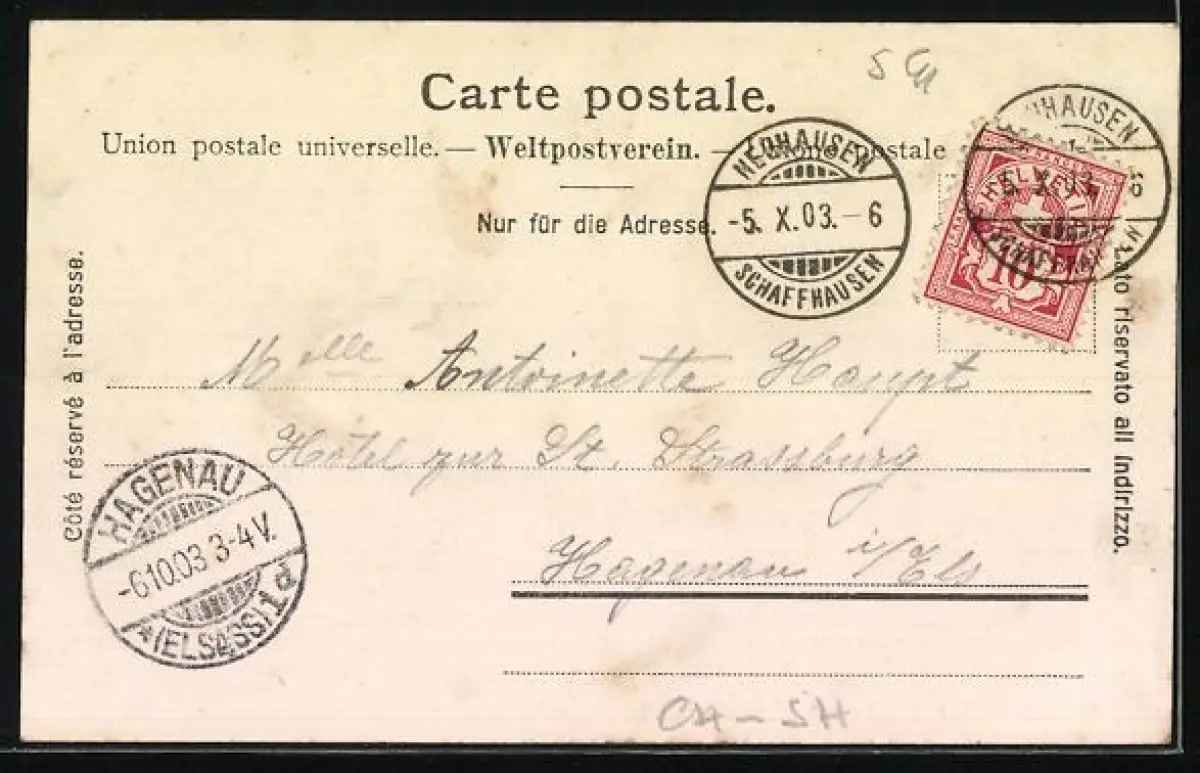 5 CH
Carte postale.
Union postale universelle. — Weltpostverein. — Unione postale
Nur für die Adresse.
NEUHAUSEN
-5. X. 03. - 6
SCHAFFHAUSEN
NEUHAUSEN
-5. X. 03. - 6
SCHAFFHAUSEN
HELVETIA
10
Côté réservé à l'adresse.
Lato riservato all indirizzo.
Melle Antoinette Haupt
Hôtel zur St. Strassburg
Hagenau i/Els
HAGENAU
-6.10.03 3-4 V.
*(ELSASS) 1 d
CH - SH